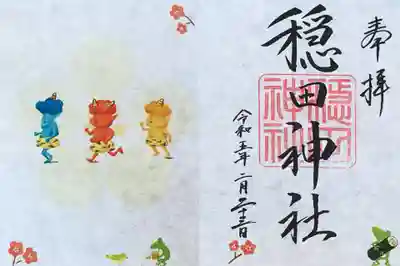 奉拝
穏田神社
穏田
神社
令和五年 二月二十三日